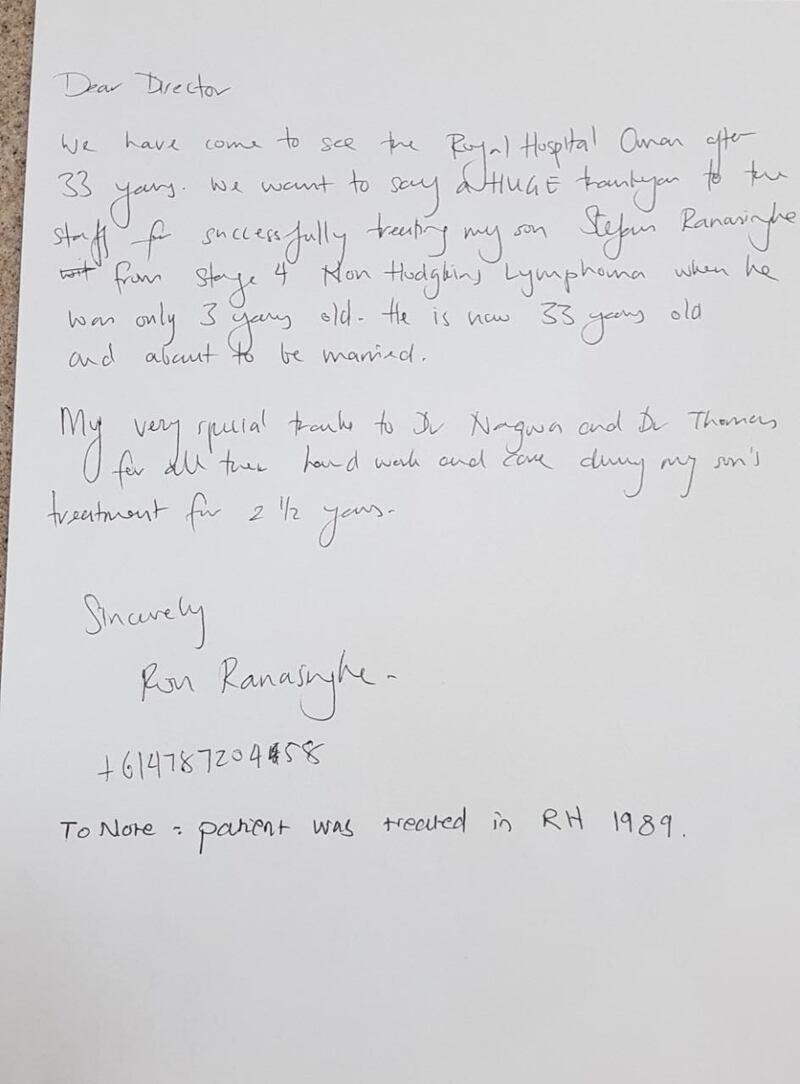 Dear Director
We have come to see the Royal Hospital Oman after
33 years. We want to say a HUGE thankyou to the
staff for successfully treating my son Stefan Ranasinghe
from Stage 4 Non Hodgkins Lymphoma when he
was only 3 years old. He is now 33 years old
and about to be married.
My very special thanks to Dr Nagwa and Dr Thomas
for all their hard work and care during my son's
treatment for 2 1/2 years.
Sincerely
Ron Ranasinghe
To Note : patient was treated in RH 1989.